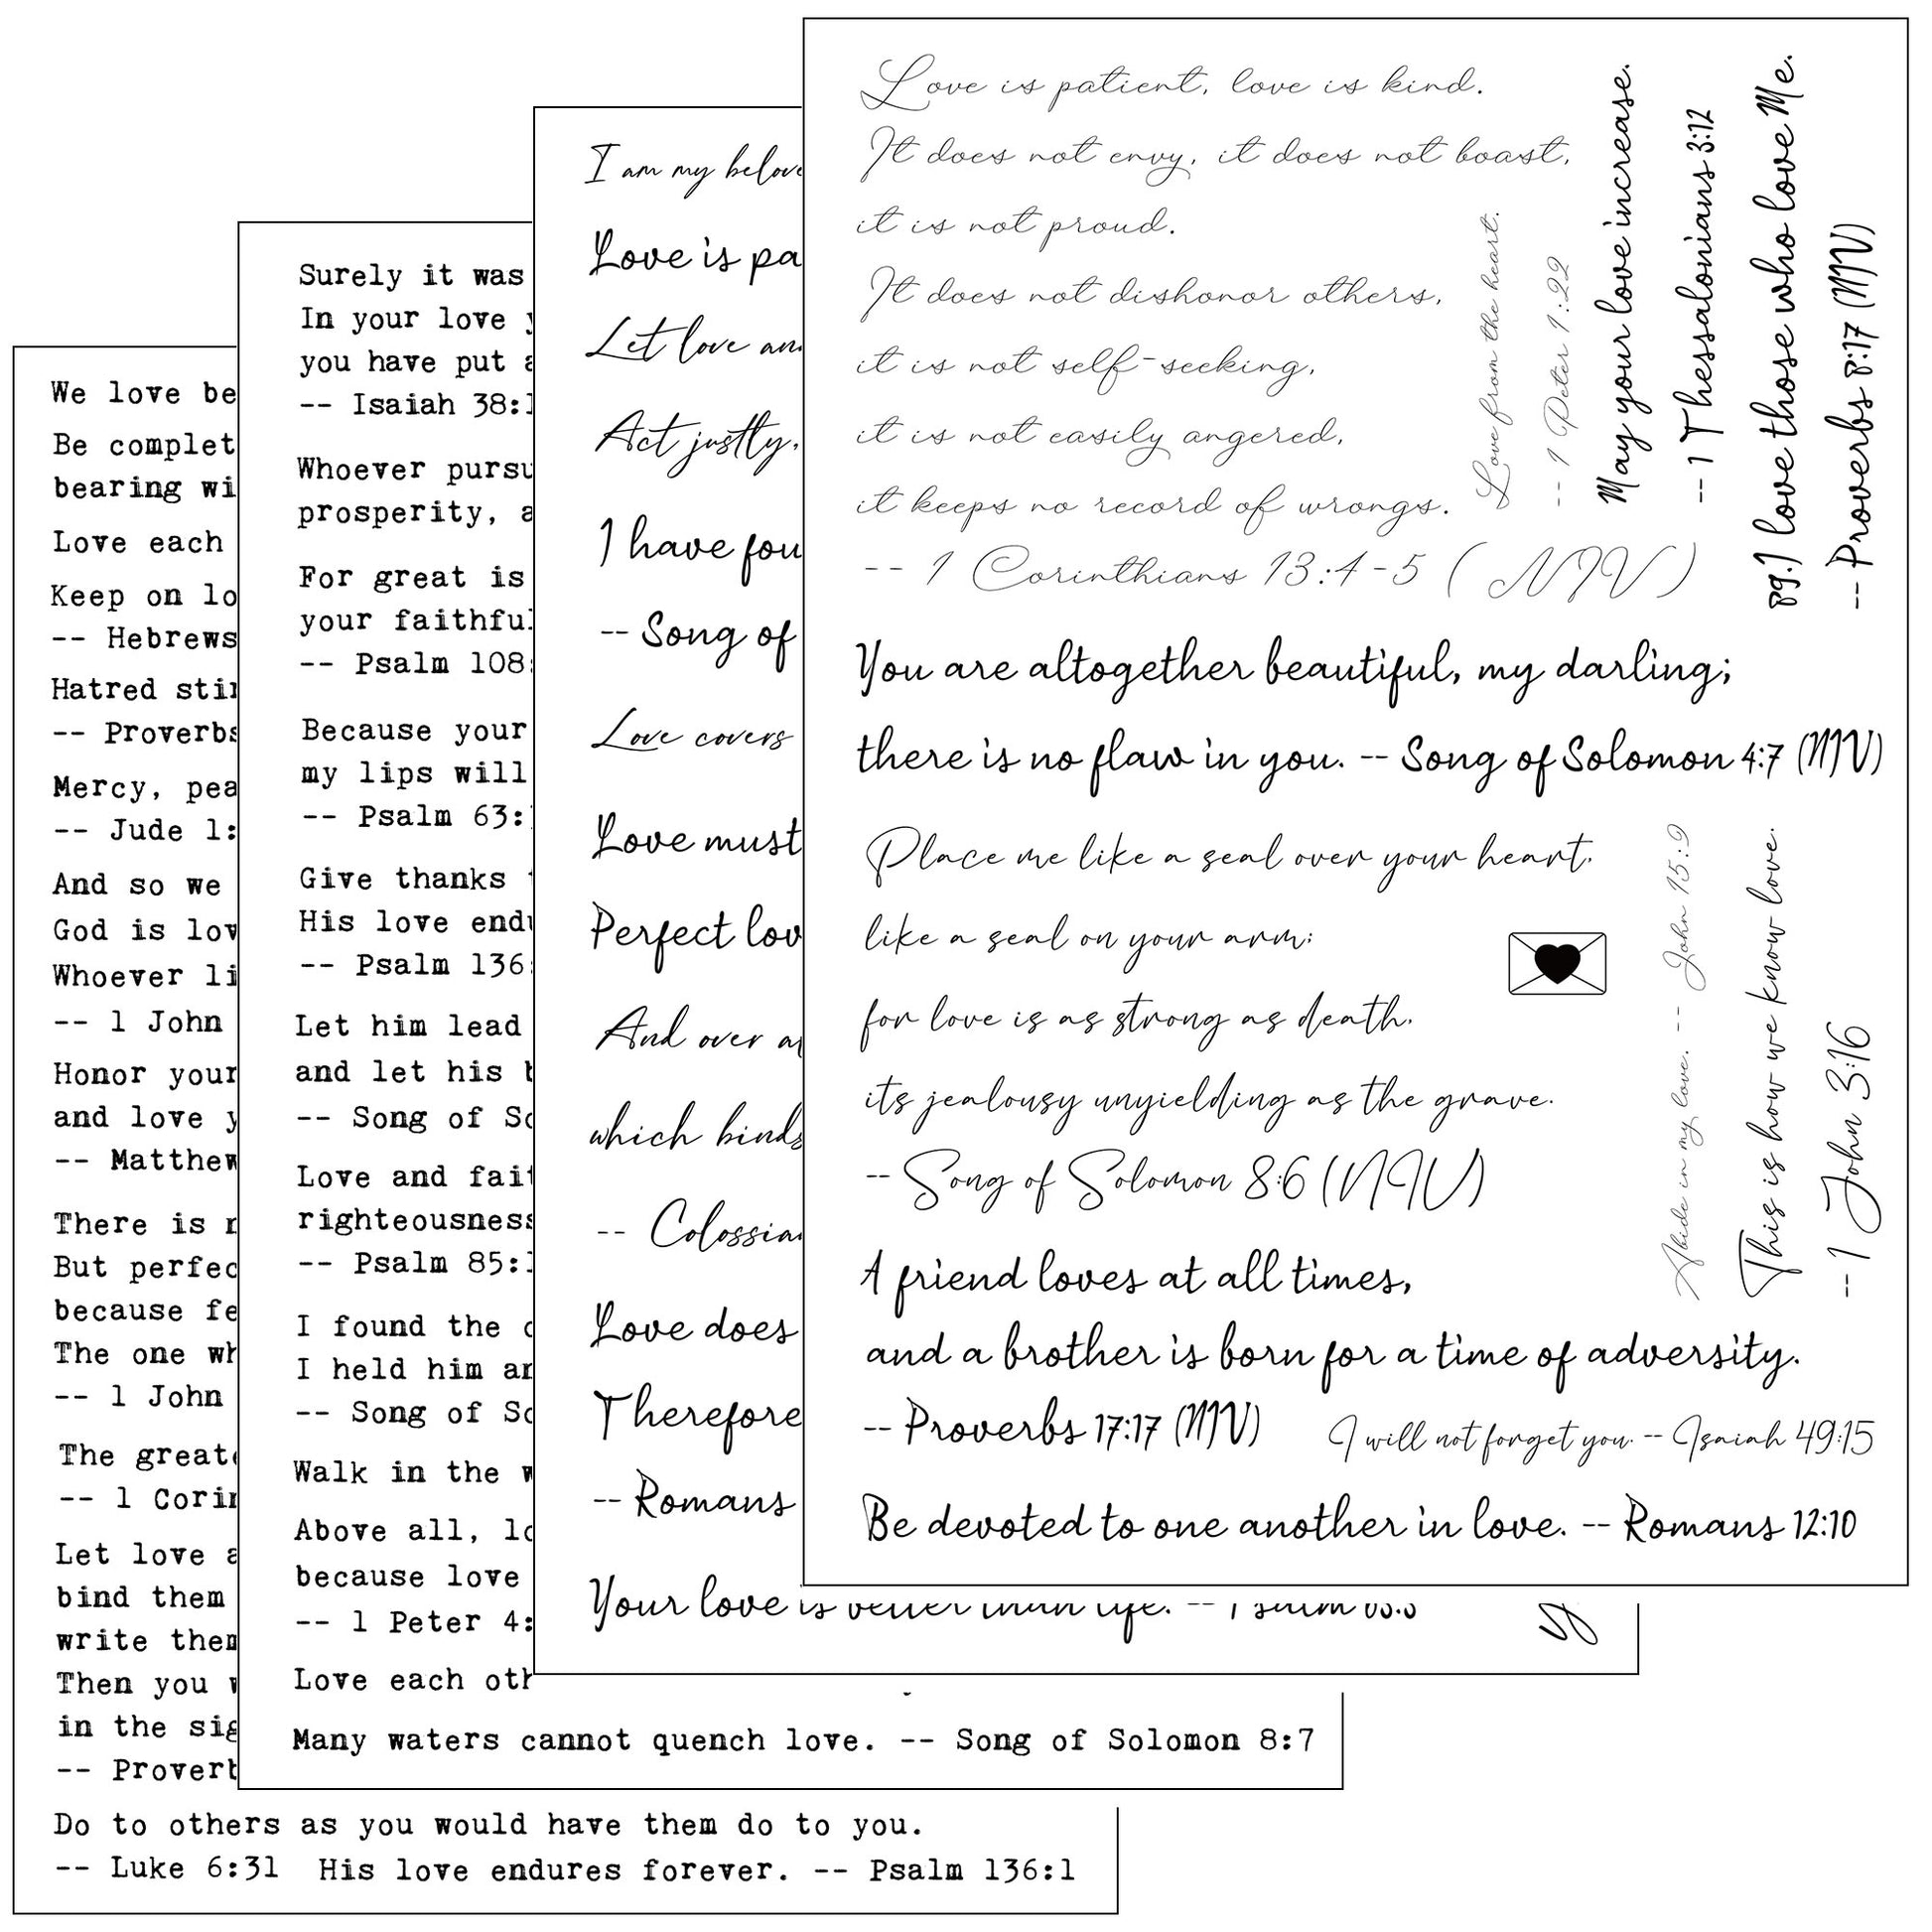 Love is patient, love is kind.
It does not envy, it does not boast,
it is not proud.
It does not dishonor others,
it is not self-seeking,
it is not easily angered,
it keeps no record of wrongs.
-- 1 Corinthians 13:4-5 ( NIV )
Love from the heart.
-- 1 Peter 1:22
May your love increase.
-- 1 Thessalonians 3:12
89.I love those who love Me.
-- Proverbs 8:17 (NIV)
You are altogether beautiful, my darling;
there is no flaw in you. -- Song of Solomon 4:7 (NIV)
Place me like a seal over your heart,
like a seal on your arm;
for love is as strong as death,
its jealousy unyielding as the grave.
-- Song of Solomon 8:6 (NIV)
Abide in my love. -- John 15:9
This is how we know love.
-- 1 John 3:16
A friend loves at all times,
and a brother is born for a time of adversity.
-- Proverbs 17:17 (NIV)
I will not forget you. -- Isaiah 49:15
Be devoted to one another in love. -- Romans 12:10
I am my belove
Love is pa
Let love an
Act justly,
I have fou
-- Song of
Love covers
Love must
Perfect lov
And over a
which binds
-- Colossia
Love does
Therefore
-- Romans
Your love is better than life. -- Psalm 63:3
Surely it was
In your love y
you have put a
-- Isaiah 38:1
Whoever pursu
prosperity, a
For great is
your faithful
-- Psalm 108:
Because your
my lips will
-- Psalm 63:
Give thanks
His love endu
-- Psalm 136:
Let him lead
and let his b
-- Song of So
Love and fait
righteousness
-- Psalm 85:1
I found the o
I held him an
-- Song of So
Walk in the w
Above all, lo
because love
-- 1 Peter 4:
Love each oth
Many waters cannot quench love. -- Song of Solomon 8:7
We love be
Be complet
bearing wi
Love each
Keep on lo
-- Hebrews
Hatred stir
-- Proverbs
Mercy, pea
-- Jude 1:
And so we
God is lov
Whoever li
-- 1 John
Honor your
and love y
-- Matthew
There is n
But perfec
because fe
The one wh
-- 1 John
The greate
-- 1 Corin
Let love a
bind them
write them
Then you w
in the sig
-- Proverb
Do to others as you would have them do to you.
-- Luke 6:31 His love endures forever. -- Psalm 136:1